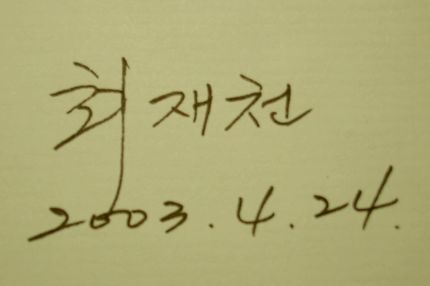 최재천
2003.4.24.